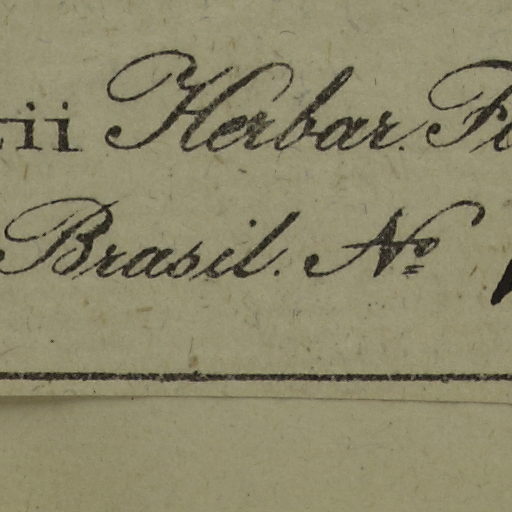 tii Herbar. Fl
Brasil. No